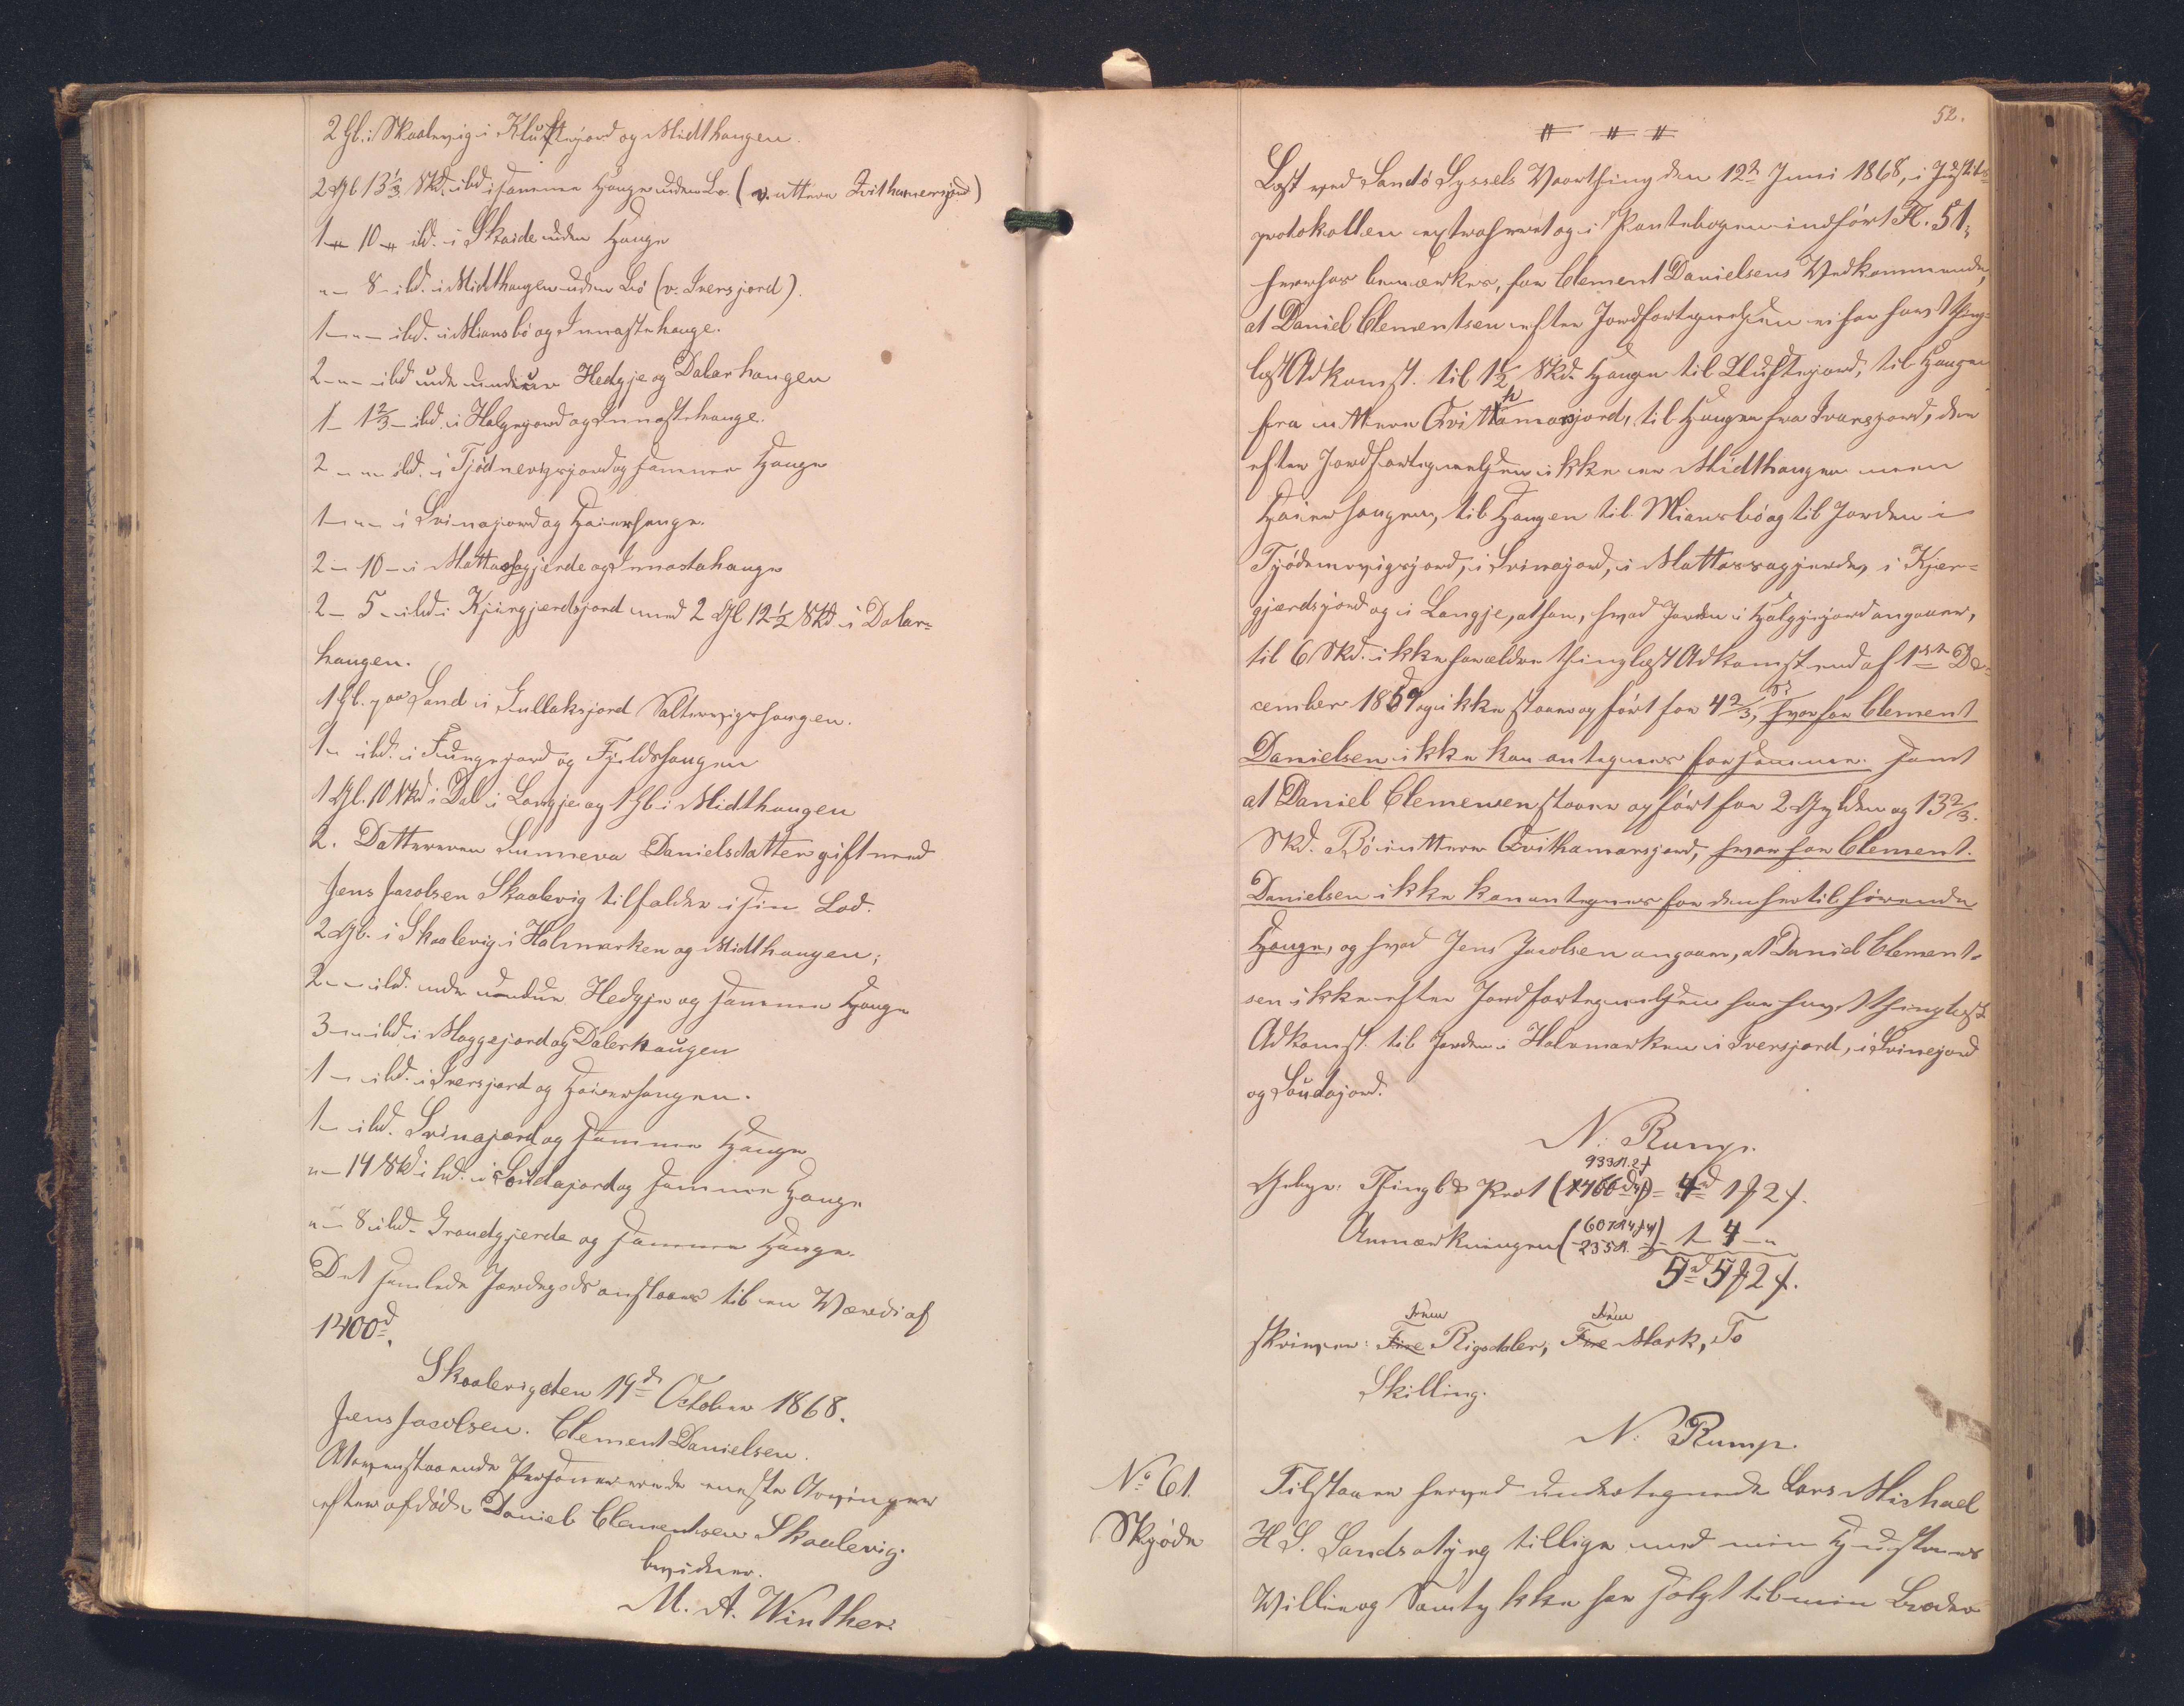 2 Gl. i Skaalevig i Kluftejord og Midthaugen.
2 Gl 13 1/3 Skd. ibd. i samme Hauge uden Bø. (v. uttere Qvithamersjord)
1 " 10 " ibd. i Skaide uden Hauge
" — 8 - ibd. i Midthaugen uden Bø (v. Iversjord).
1 — " — ibd. i Miansbø og Innastehauge.
2 — " — ibd. Hedgje og Dalarhaugen
1 — 1 2/3 — ibd. i Halgejord og Innastehauge.
2 — " — ibd. i Tjødnevigsjord og samme Hauge
1 — " — i Svinajord og Haierhauge.
2 — 10 — i Mattasagjerde og Innastahauge
2 — 5 — ibd. i Kjirgjerdsjord med 2 Gl 12 1/2 Skd. i Dalar-
haugen.
1 Gl. paa Sand i Gullaksjord Saltervigshaugen.
1 — ibd. i Tungejord og Fjeldshaugen
1 Gl. 10 Skd i Dal i Langje og 1 Gl. i Midthaugen
2. Datteren Sunneva Danielsdatter gift med
Jens Jacobsen Skaalevig tilfalder i sin Lod.
2 Gl. i Skaalevig i Halmarken og Midthaugen;
2 — " — ibd. Hedgje og samme Hauge
3 — " — ibd. i Moggejord og Dalerhaugen
1 — " — ibd. i Iversjord og Haierhaugen.
1 — ibd. Svinajord og samme Hauge
" — 14 Skd ibd. i Loudajord og samme Hauge
" — 8 ibd. Groudgjerde og samme Hauge.
Det samlede Jordegods anslaaes til en Værdi af
1400 d.
Skaalevig den 19d October 1868.
Jens Jacobsen. Clement Danielsen.
Ovenstaaende Personer ere de eneste Arvinger
efter afdøde Daniel Clementsen Skaalevig
bevidner.
M. A. Winther.
52.
" " "
Læst ved Sandø Syssels Vaarthing den 12te Juni 1868, i Justits-
protokollen extraheret og i Pantebogen indført Fl. 51,
hvorhos bemærkes, for Clement Danielsens Vedkommende,
at Daniel Clementsen efter Jordfortegnelsen ei har havt thing-
læst Adkomst til 1 1/2 Skd. Haugen til Kluftejord, til Haugen
fra uttere Qvithamarsjord, til Haugen fra Iversjord, der
efter Jordfortegnelsen ikke er Midthaugen men
Haierhaugen, til Haugen til Miansbø og til Jorden i
Tjødnevigsjord, i Svinajord, i Mattasagjerde, i Kjer-
gjerdsjord og i Langje, at han, hvad Jorden i Halgejord angaaer,
til 6 Skd. ikke har ældre thinglæst Adkomst end af 1ste De-
cember 1859 og ikke staaer opført for 4 2/3 Sk, hvorfor Clement
Danielsen ikke kan antegnes for samme. samt
at Daniel Clemensen staaer opført for 2 Gylden og 13 2/3.
Skd. Bø i uttere Qvithamarsjord, hvorfor Clement.
Danielsen ikke kan antegnes for den hertil hørende
Hauge, og hvad Jens Jacobsen angaaer, at Daniel Clement-
sen ikke efter Jordfortegnelsen har havt thinglæst
Adkomst til Jorden i Halvmarken i Iversjord, i Svinejord
og Loudajord.
N. Rump.
933 rd. 2 f
Gebyr: Thingl. & Prot (1466 d 4 f) = 4 d 1 f 2 f.
Anmærkningen (607 rd 4 f 4 / 235 rd.) 1 — 4 — "
5 d 5 f 2 f.
Fem Fem
skriver: Fire Rigsdaler, Fire Mark, To
Skilling.
N. Rump.
No 61.
Skjøde
Tilstaaer herved undertegnede Lars Michael
H S. Sandsaty, jeg tillige med min Hustrues
Villie og Samtykke har solgt til min Broder